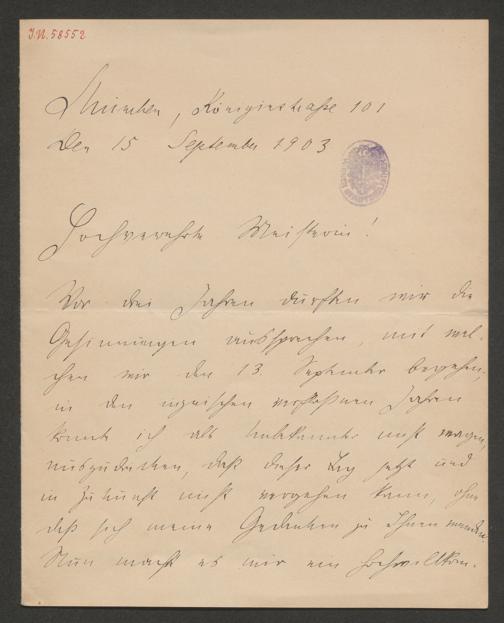 J.N. 58552
München, Königinstraße 101
Den 15 September 1903
Hochverehrte Meisterin!
Vor drei Jahren durften wir die
Gesinnungen aussprechen, mit wel-
chen wir den 13. September begehen;
in den inzwischen verflossenen Jahren
konnte ich als Unbekannter nicht wagen,
auszudrücken, daß dieser Tag jetzt und
in Zukunft nicht vergehen kann, ohne
daß sich meine Gedanken zu Ihnen wenden.
Nun macht es mir ein hochwillkom-